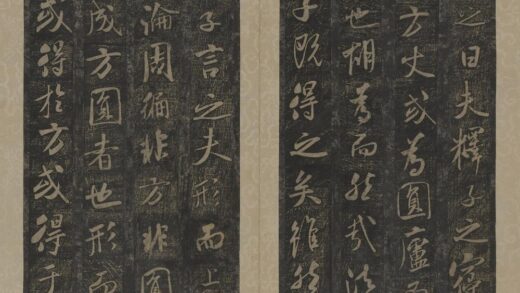 之曰夫釋子之寢
方丈或為圓廬而
也胡為而然哉法
子既得之矣雖然
子言之夫形而上
淪周徧非方非圓
成方圓者也形而
或得於方或得于